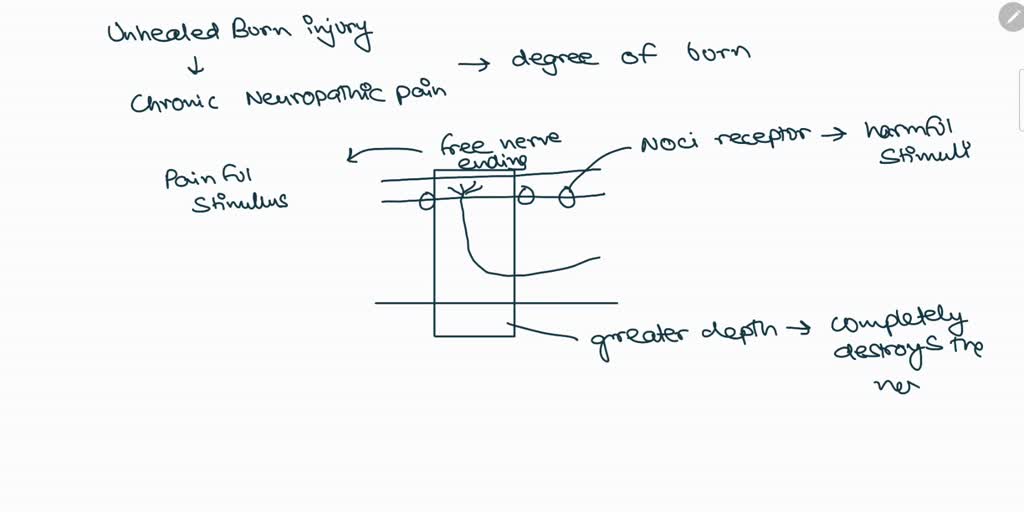 Unhealed Born injury
↓
Chronic Neuropathic pain → degree of born
free nerve
ending
Noci receptor → harmful
stimuli
Painful
stimulus
greater depth → completely
destroys the
ner